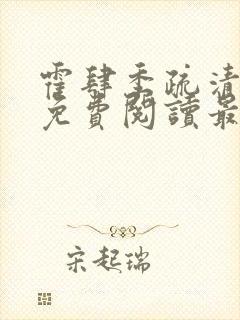 霍肆季疏清
免費閱讀最
宋起瑞